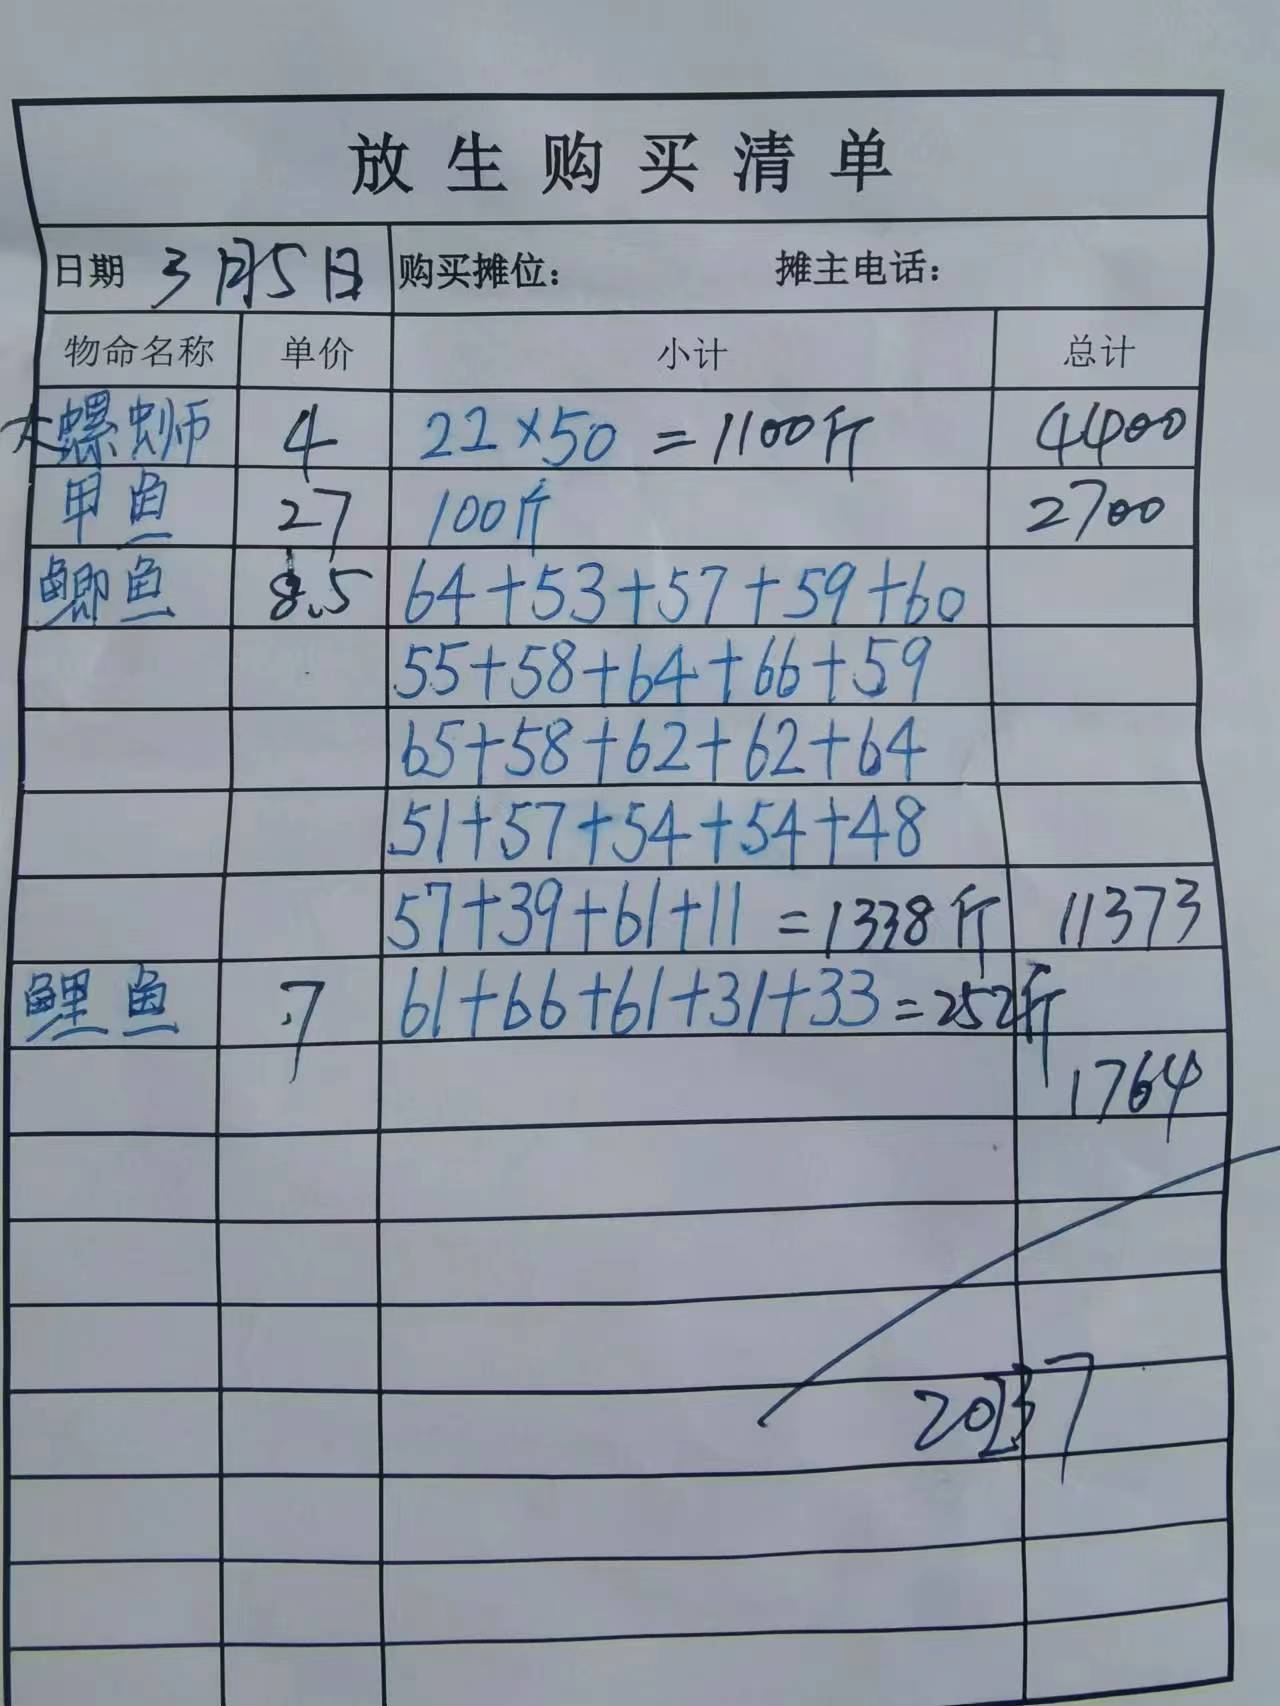 放生购买清单
日期 3月5日 购买摊位： 摊主电话：
物命名称 单价 小计 总计
大螺蛳 4 22×50=1100斤 4400
甲鱼 27 100斤 2700
鲫鱼 8.5 64+53+57+59+60
55+58+64+66+59
65+58+62+62+64
51+57+54+54+48
57+39+61+11=1338斤 11373
鲤鱼 7 61+66+61+31+33=252斤
1764
20237